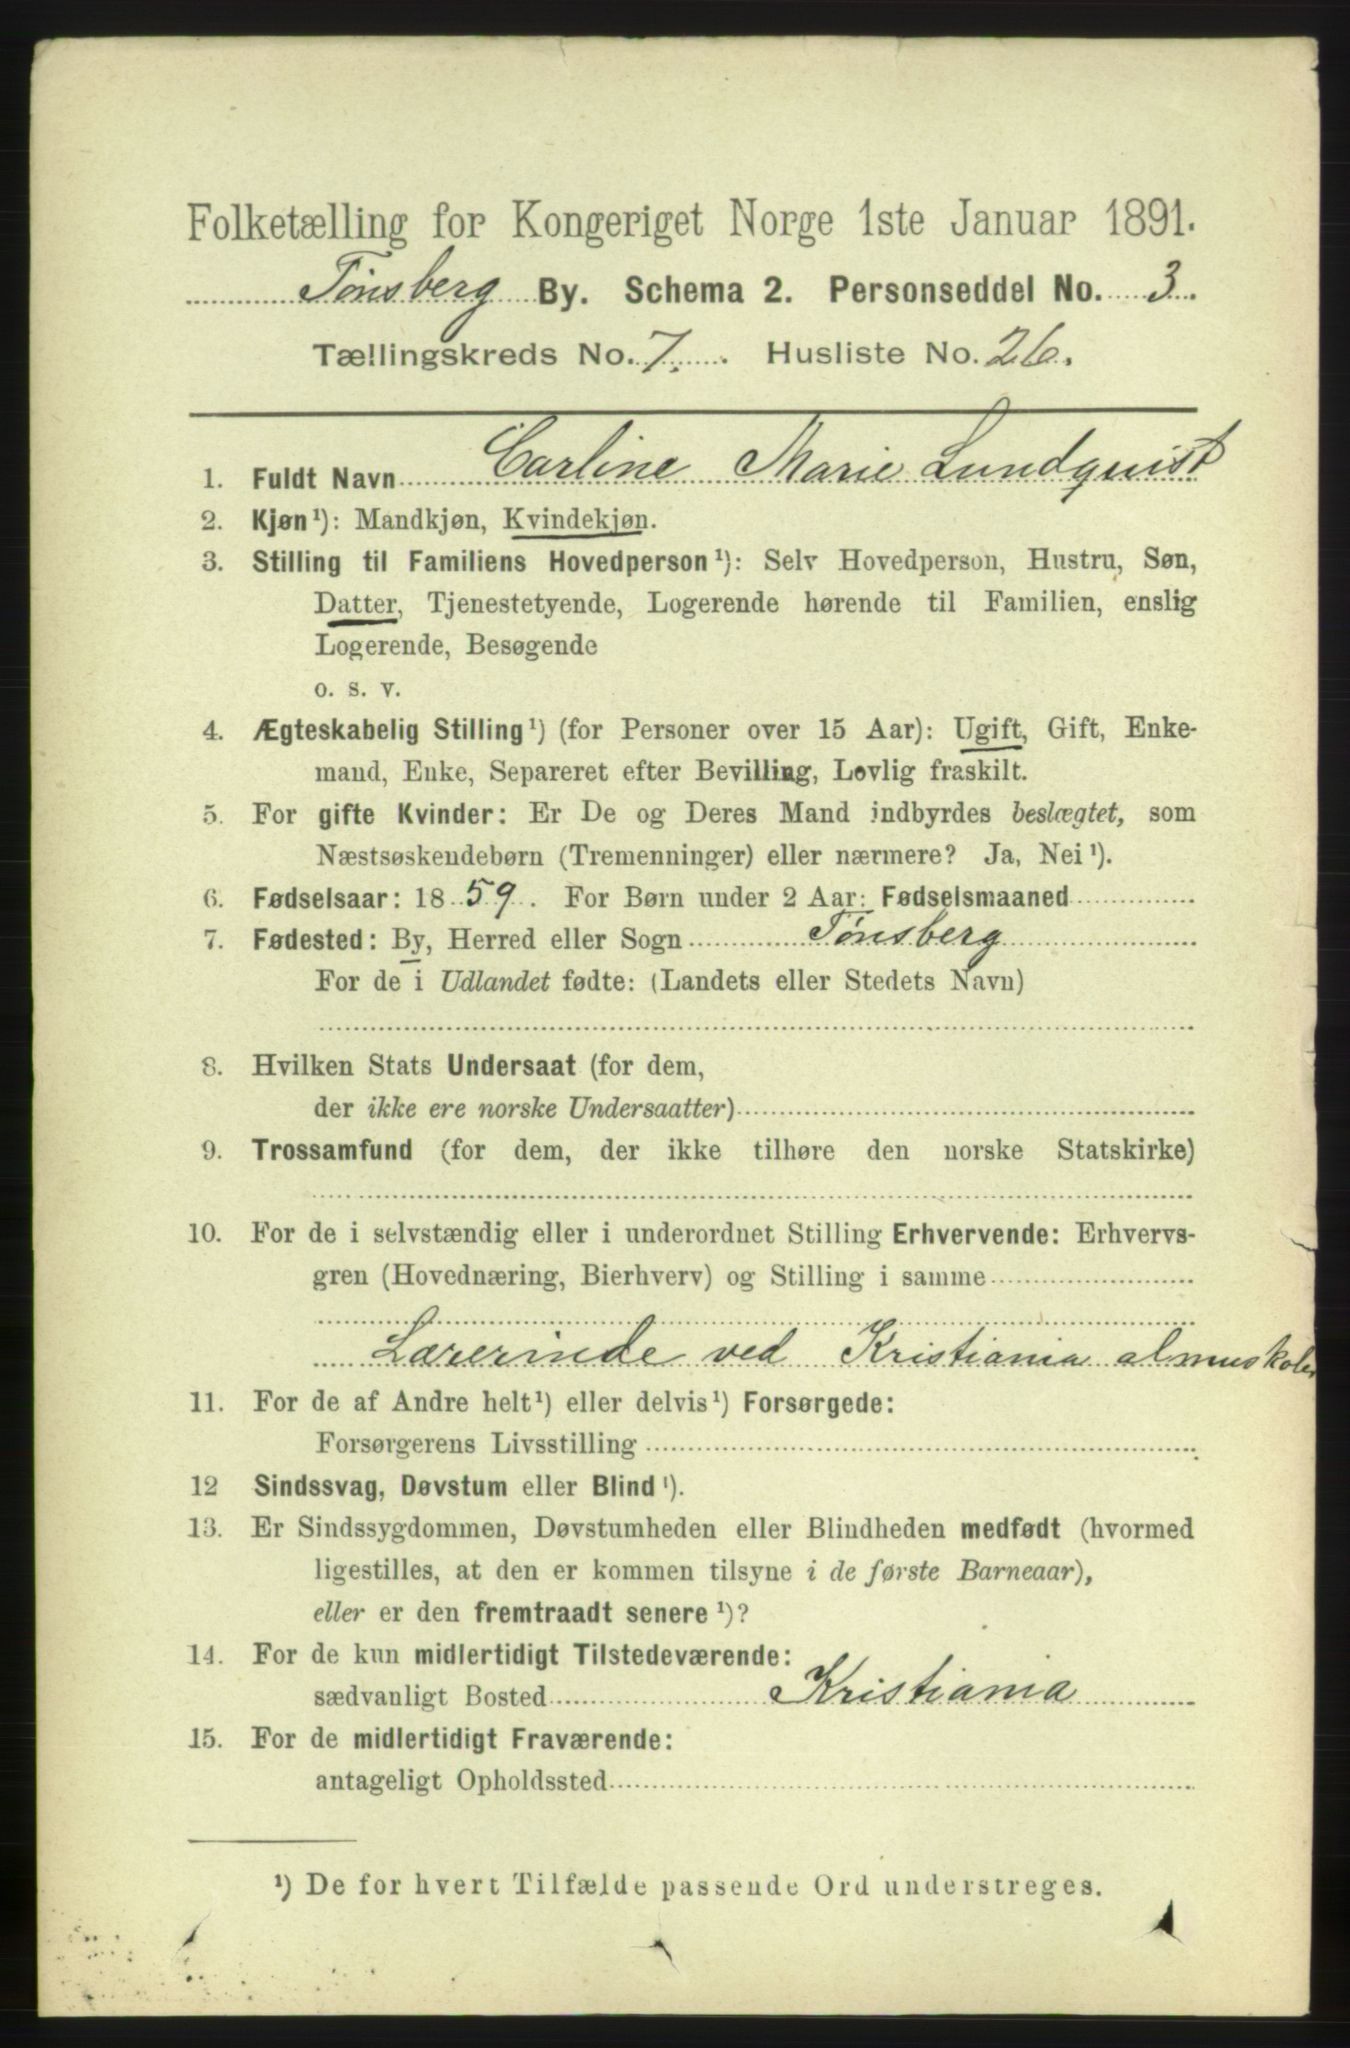 Folketælling for Kongeriget Norge 1ste Januar 1891.
Tønsberg By. Schema 2. Personseddel No. 3.
Tællingskreds No. 7. Husliste No. 26.
1. Fuldt Navn Carline Marie Lundquist
2. Kjøn¹): Mandkjøn, Kvindekjøn.
3. Stilling til Familiens Hovedperson¹): Selv Hovedperson, Hustru, Søn,
Datter, Tjenestetyende, Logerende hørende til Familien, enslig
Logerende, Besøgende
o. s. v.
4. Ægteskabelig Stilling¹) (for Personer over 15 Aar): Ugift, Gift, Enke-
mand, Enke, Separeret efter Bevilling, Lovlig fraskilt.
5. For gifte Kvinder: Er De og Deres Mand indbyrdes beslægtet, som
Næstsøskendebørn (Tremenninger) eller nærmere? Ja, Nei¹).
6. Fødselsaar: 1859. For Børn under 2 Aar: Fødselsmaaned
7. Fødested: By, Herred eller Sogn Tønsberg
For de i Udlandet fødte: (Landets eller Stedets Navn)
8. Hvilken Stats Undersaat (for dem,
der ikke ere norske Undersaatter)
9. Trossamfund (for dem, der ikke tilhøre den norske Statskirke)
10. For de i selvstændig eller i underordnet Stilling Erhvervende: Erhvervs-
gren (Hovednæring, Bierhverv) og Stilling i samme
Lærerinde ved Kristiania almuskoler
11. For de af Andre helt¹) eller delvis¹) Forsørgede:
Forsørgerens Livsstilling
12 Sindssvag, Døvstum eller Blind¹).
13. Er Sindssygdommen, Døvstumheden eller Blindheden medfødt (hvormed
ligestilles, at den er kommen tilsyne i de første Barneaar),
eller er den fremtraadt senere¹)?
14. For de kun midlertidigt Tilstedeværende:
sædvanligt Bosted Kristiania
15. For de midlertidigt Fraværende:
antageligt Opholdssted
¹) De for hvert Tilfælde passende Ord understreges.